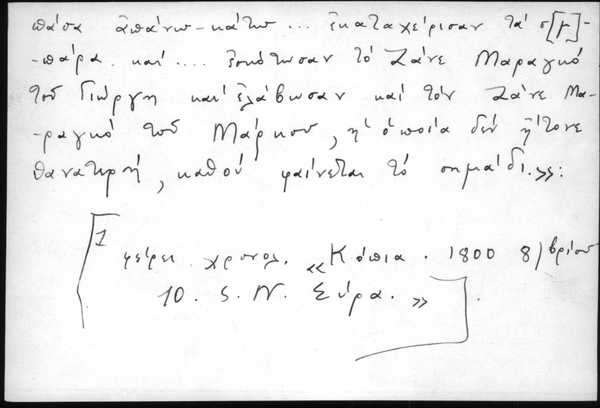 πᾶσα ἀπάνω-κάτω ... ἐκαταχείρισαν τά σ[μ]-
-πάρα. καί .... ἐσκότωσαν τό Ζάνε Μαραγκό
τοῦ Γιώργη καί ἐλάβωσαν καί τόν Ζάνε Μα-
-ραγκό τοῦ Μάρκου, ἡ ὁποία δέν ἤτονε
θανατερή, καθού φαίνεται τό σημάδι.»:
[1 φέρει χρονολ. «Κόπια. 1800 8/βρίου
10. S. N. Σύρα.»].